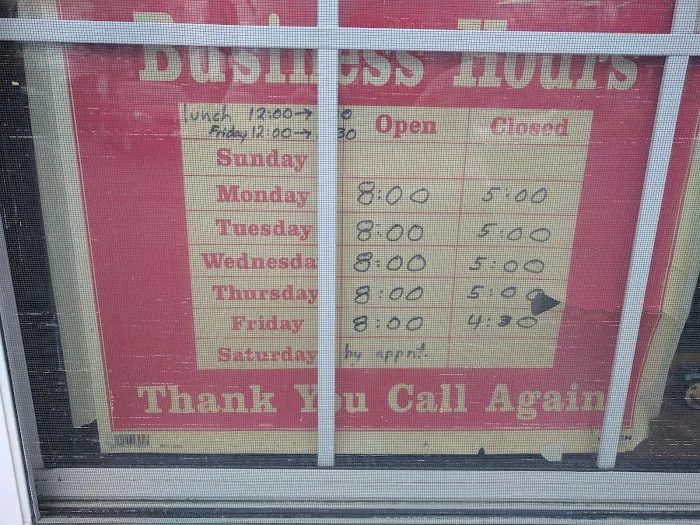 Business Hours
lunch 12:00→ 0
Friday 12:00→ 30
Open Closed
Sunday
Monday 8:00 5:00
Tuesday 8:00 5:00
Wednesda 8:00 5:00
Thursday 8:00 5:00
Friday 8:00 4:30
Saturday by appnt.
Thank You Call Again